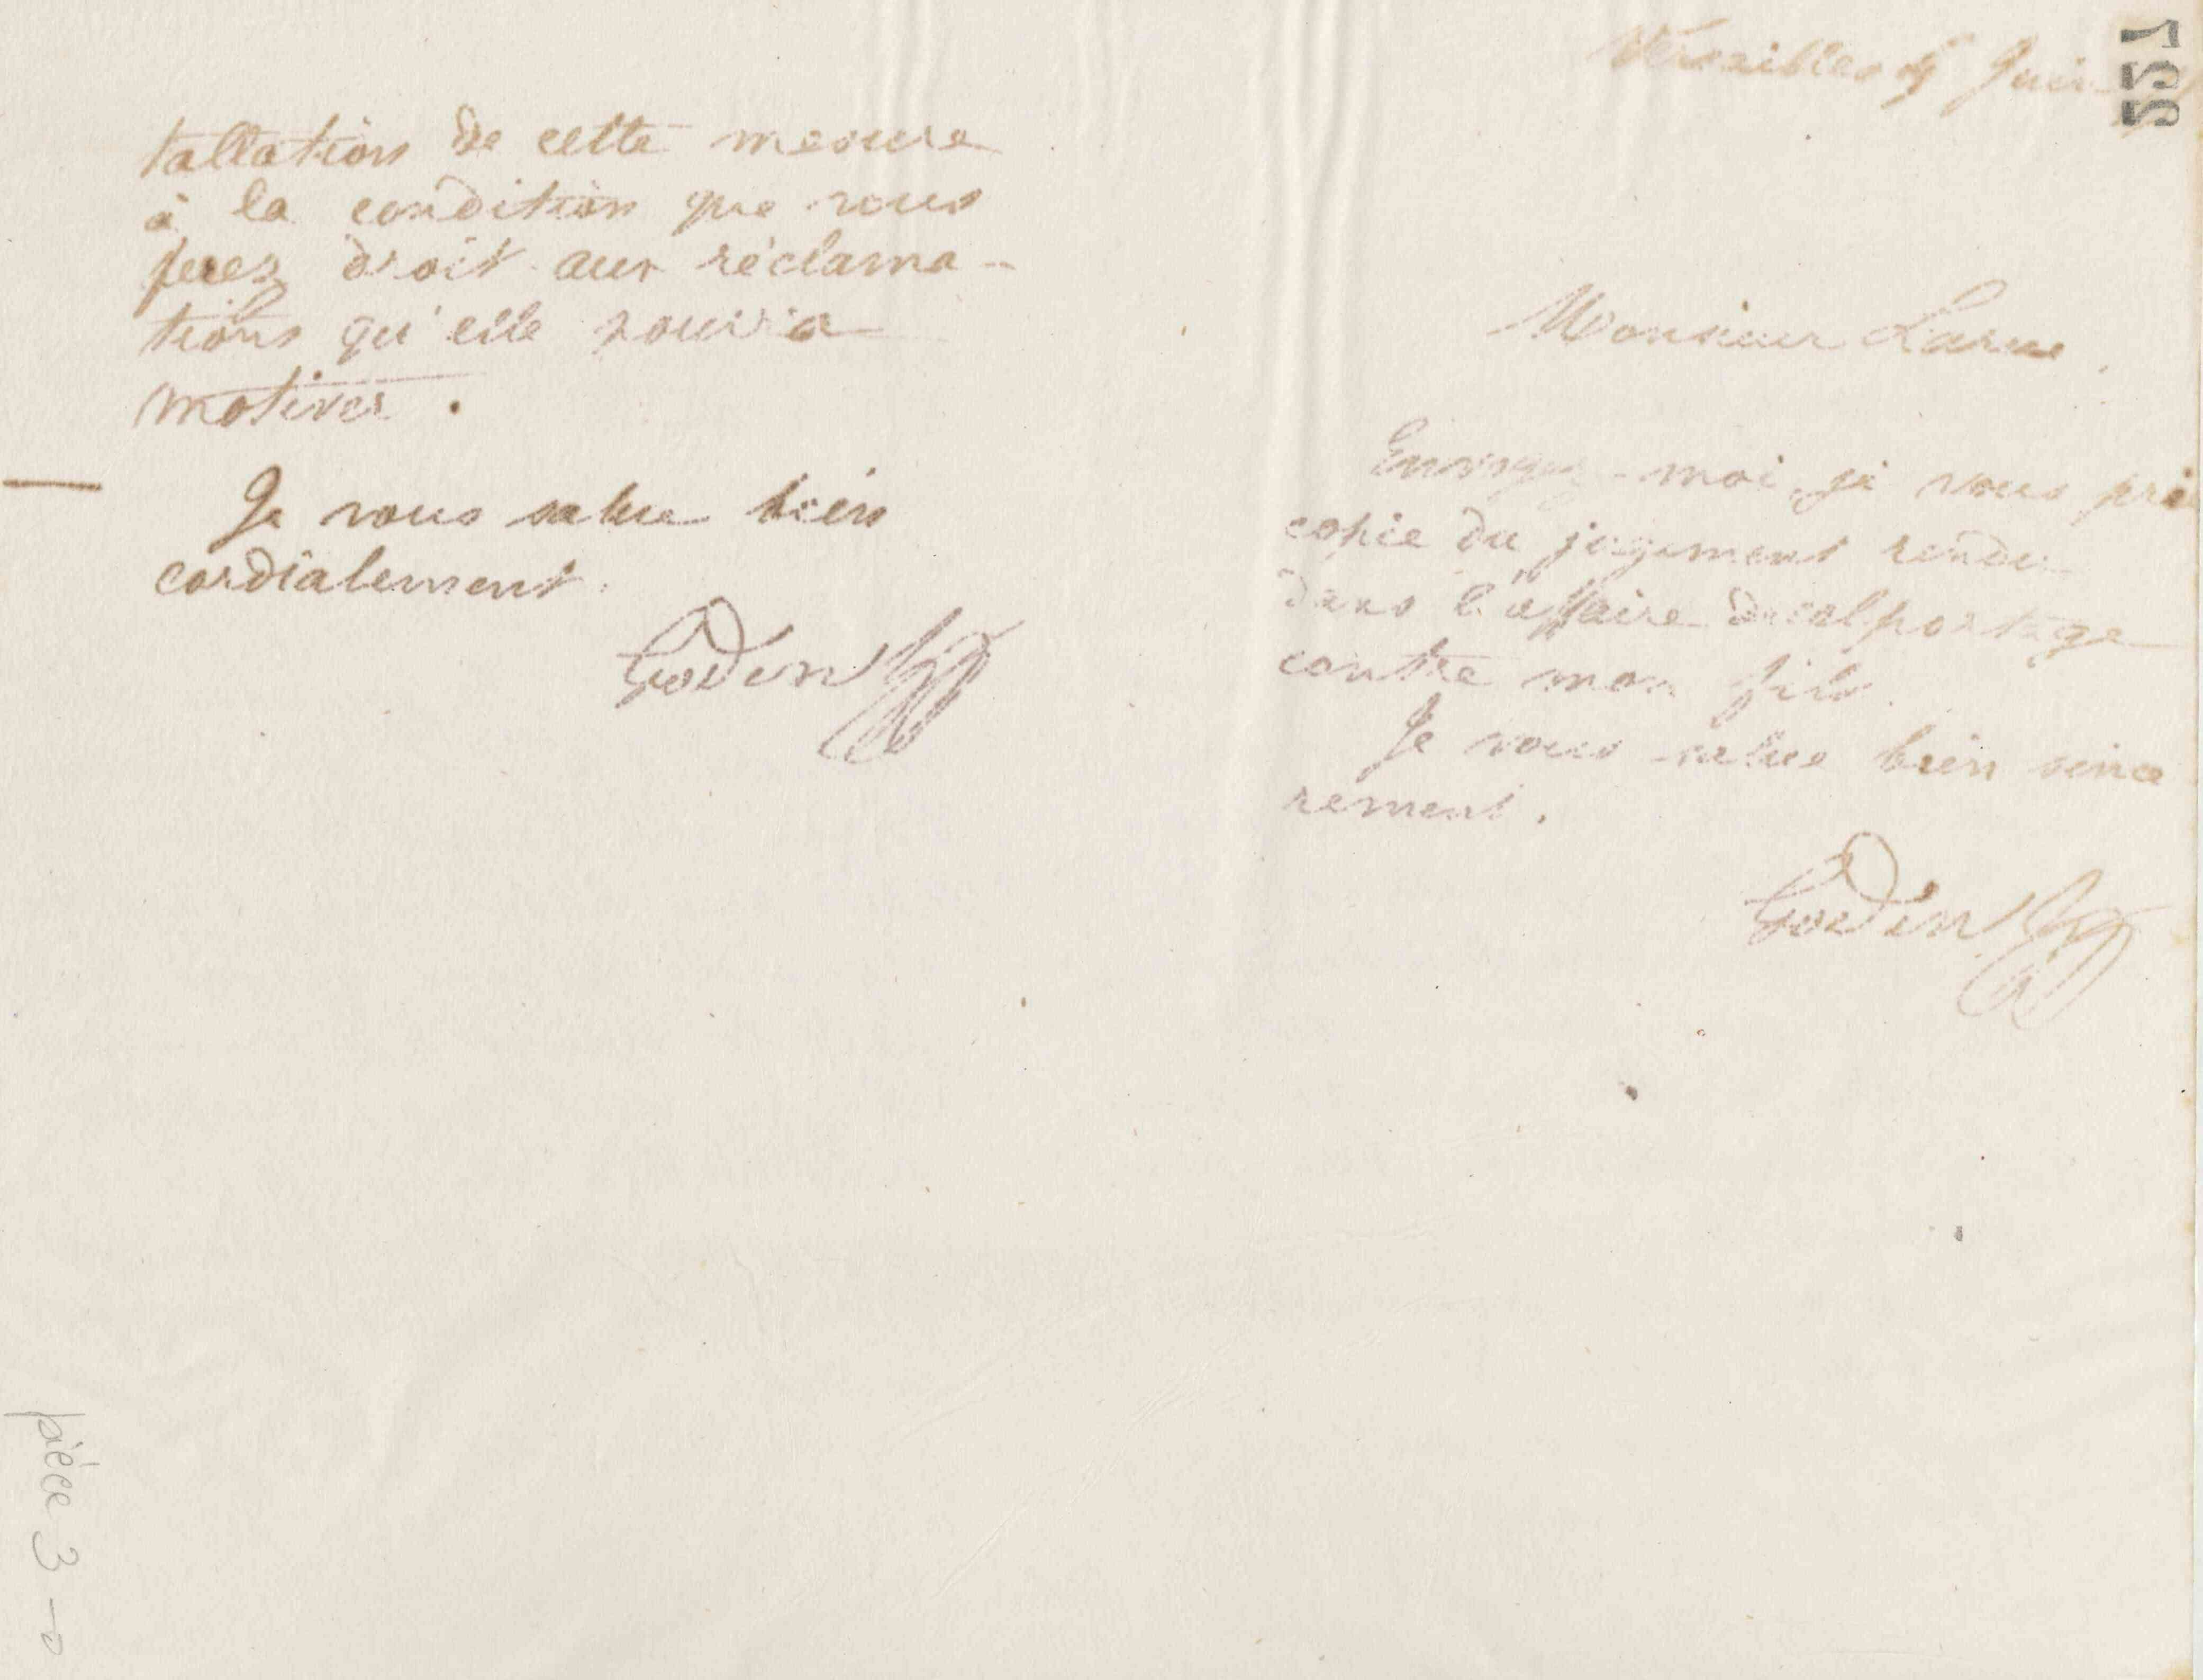 tallation de cette mesure
à la condition que vous
ferez droit aux réclama-
tions qu'elle pourra
motiver.
Je vous salue bien
cordialement.
Godin
551
Versailles Juin
Monsieur Larue
Envoyez-moi, je vous prie
copie du jugement rendu
dans l'affaire de colportage
contre mon fils.
Je vous salue bien sincè
rement.
Godin
pièce 3